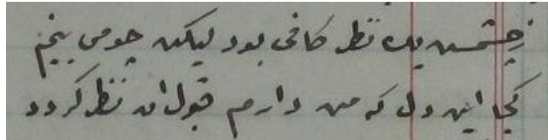 ز چشمت یک نظر کافی بود لیکن چو می بینم
کجا این دل که من دارم قبول آن نظر گردد